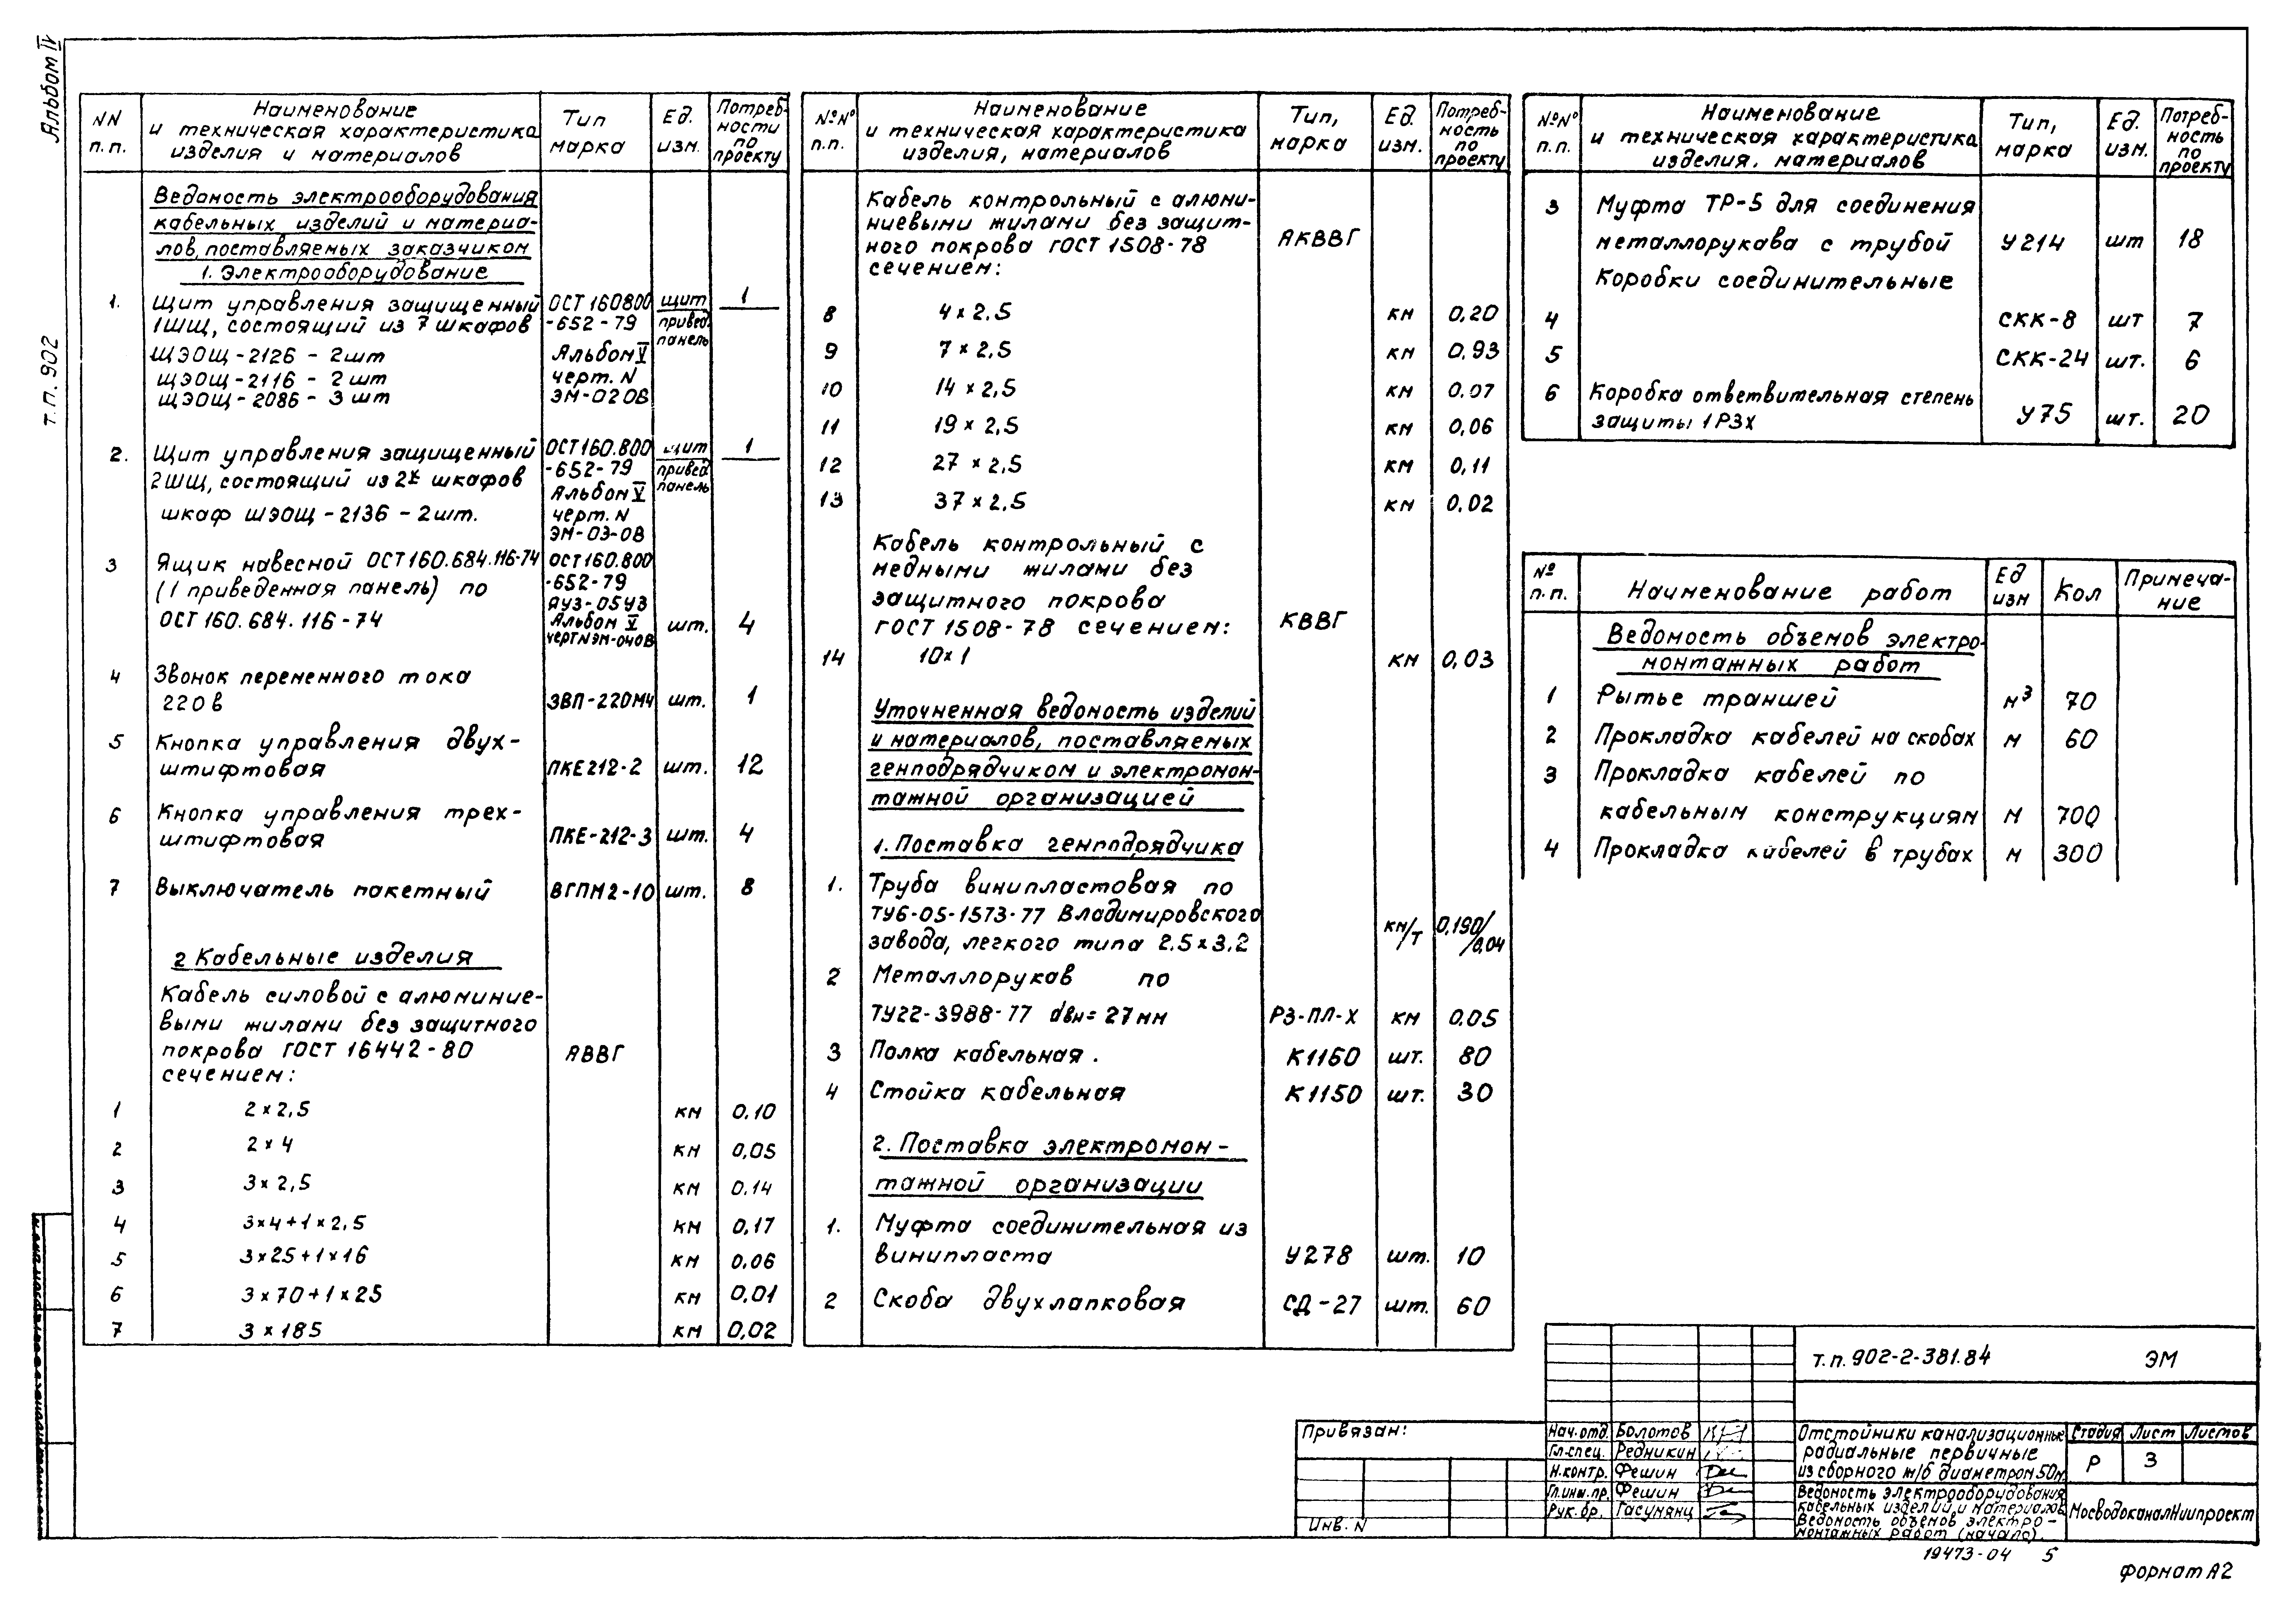 Альбом IV
т.п. 902
NN п.п.
Наименование и техническая характеристика изделия и материалов
Тип марка
Ед. изм.
Потреб-ности по проекту
Ведомость электрооборудования
кабельных изделий и материа-
лов, поставляемых заказчиком
1. Электрооборудование
1. Щит управления защищенный ОСТ 160800 щит 1
1ШЩ, состоящий из 7 шкафов -652-79 привед.
панель
ЩЭОЩ-2126 - 2шт Альбом V
ЩЭОЩ-2116 - 2 шт черт. N
ЩЭОЩ-2086 - 3 шт ЭМ-020В
2. Щит управления защищенный ОСТ160.800 щит 1
2ШЩ, состоящий из 2х шкафов -652-79 привед.
Альбом V панель
шкаф ШЭОЩ-2136 - 2шт. черт. N
ЭМ-03-0В
3 Ящик навесной ОСТ160.684.116-74 ОСТ160.800
(1 приведенная панель) по -652-79
ЯУЗ-05УЗ
ОСТ160.684.116-74 Альбом V шт. 4
черт N ЭМ-040В
4 Звонок переменного тока
220в ЗВП-220М4 шт. 1
5 Кнопка управления двух-
штифтовая ПКЕ212-2 шт. 12
6 Кнопка управления трех-
штифтовая ПКЕ-212-3 шт. 4
7 Выключатель пакетный ВГПМ2-10 шт. 8
2 Кабельные изделия
Кабель силовой с алюминие-
выми жилами без защитного
покрова ГОСТ 16442-80 АВВГ
сечением:
1 2×2,5 км 0,10
2 2×4 км 0,05
3 3×2,5 км 0.14
4 3×4+1×2,5 км 0,17
5 3×25+1×16 км 0,06
6 3×70+1×25 км 0,01
7 3×185 км 0,02
№№ п.п.
Наименование и техническая характеристика изделия, материалов
Тип, марка
Ед. изм.
Потреб-ность по проекту
Кабель контрольный с алюми-
ниевыми жилами без защит-
ного покрова ГОСТ 1508-78 АКВВГ
сечением:
8 4×2.5 км 0,20
9 7×2,5 км 0,93
10 14×2,5 км 0,07
11 19×2,5 км 0,06
12 27×2,5 км 0,11
13 37×2,5 км 0,02
Кабель контрольный с
медными жилами без
защитного покрова
ГОСТ 1508-78 сечением: КВВГ
14 10×1 км 0,03
Уточненная ведомость изделий
и материалов, поставляемых
генподрядчиком и электромон-
тажной организацией
1. Поставка генподрядчика
1. Труба винипластовая по
ТУ6-05-1573-77 Владимировского км/т 0,190/0,04
завода, легкого типа 2.5×3.2
2 Металлорукав по
ТУ22-3988-77 dвн=27мм РЗ-ПЛ-Х км 0.05
3 Полка кабельная. К1160 шт. 80
4 Стойка кабельная К1150 шт. 30
2. Поставка электромон-
тажной организации
1. Муфта соединительная из
винипласта У278 шт. 10
2 Скоба двухлапковая СД-27 шт. 60
№№ п.п.
Наименование и техническая характеристика изделия, материалов
Тип, марка
Ед. изм.
Потреб-ность по проекту
3 Муфта ТР-5 для соединения
металлорукава с трубой У214 шт 18
Коробки соединительные
4 СКК-8 шт 7
5 СКК-24 шт. 6
6 Коробка ответвительная степень
защиты 1Р3Х У75 шт. 20
№ п.п.
Наименование работ
Ед изм
Кол
Примеча-ние
Ведомость объемов электро-
монтажных работ
1 Рытье траншей м³ 70
2 Прокладка кабелей на скобах м 60
3 Прокладка кабелей по
кабельным конструкциям м 700
4 Прокладка кабелей в трубах м 300
т.п. 902-2-381.84 ЭМ
Привязан:
Инв. N
Нач.отд. Болотов
Гл.спец. Редникин
Н.контр. Фешин
Гл.инж.пр. Фешин
Рук.бр. Гасумянц
Отстойники канализационные
радиальные первичные
из сборного ж/б диаметром 50м.
Стадия Лист Листов
Р 3
Ведомость электрооборудования
кабельных изделий и материалов
Ведомость объемов электро-
монтажных работ (начало).
МосводоканалНиипроект
19473-04 5
Формат А2